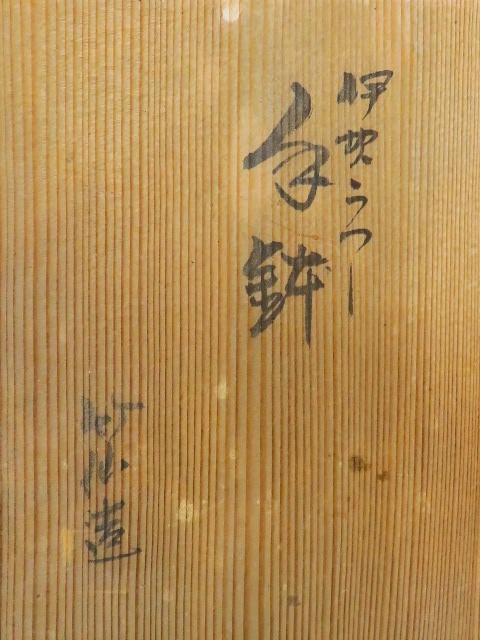 伊賀うつし
手鉢
竹仙造